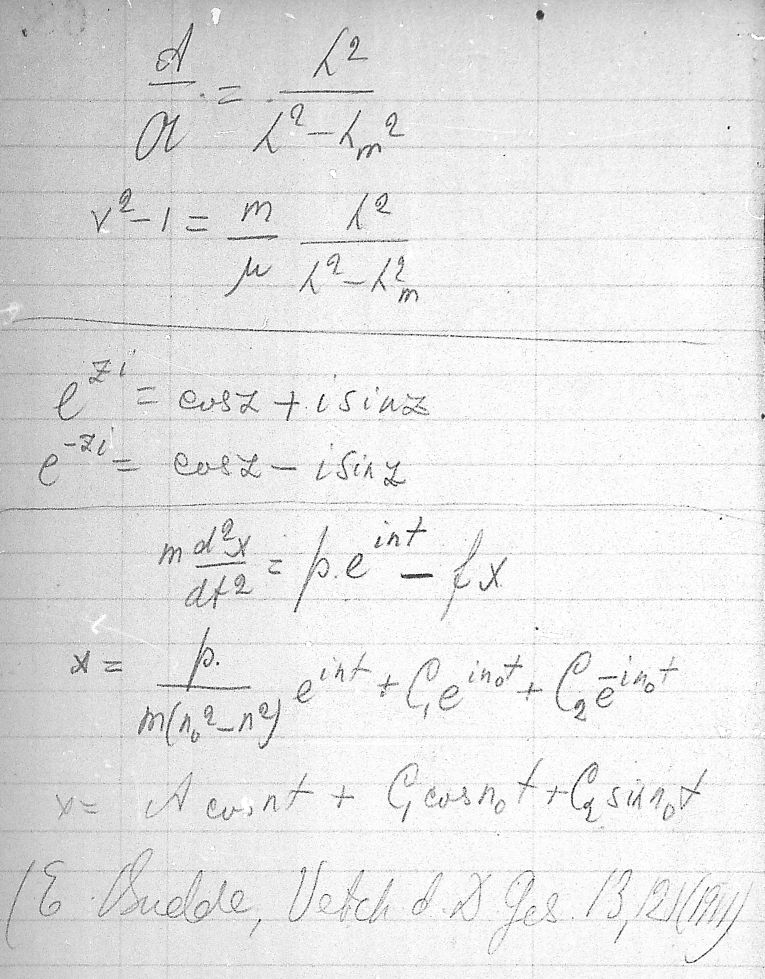 A/α = λ²/(λ² − λm²)
ν² − 1 = m/μ λ²/(λ² − λ²m)
e^zi = cos z + i sin z
e^-zi = cos z − i sin z
m d²x/dt² = p.e^int − fx
x = p./m(n₀² − n²) e^int + C₁e^in₀t + C₂e^-in₀t
x = A cos nt + C₁ cos n₀t + C₂ sin n₀t
(E. Budde, d. D Ges. 13, 121 (1911)